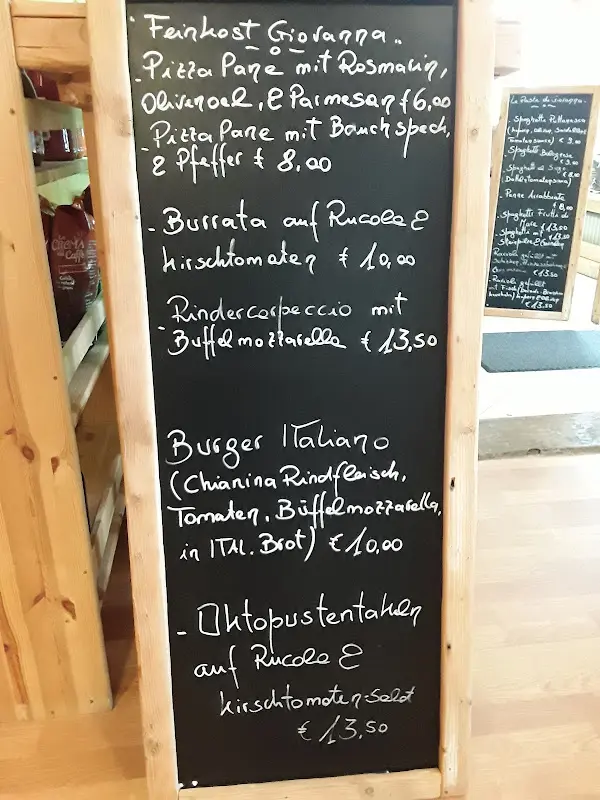 Feinkost Giovanna..
- Pizza Pane mit Rosmarin,
Olivenoel, & Parmesan € 6,00
- Pizza Pane mit Bauchspeck,
& Pfeffer € 8,00
- Burrata auf Rucola &
kirschtomaten € 10,00
- Rindercarpeccio mit
Büffelmozzarella € 13,50
Burger ITaliano
(Chianina Rindfleisch,
Tomaten, Büffelmozzarella,
in ITAL. Brot) € 10,00
- Oktopustentakeln
auf Rucola &
kirschtomaten-Salat
€ 13,50
CREMA
Caffè
La Pasta di Giovanna
- Spaghetti Puttanesca
Tomatensauce) € 9,00
Spaghetti Bolognese
€ 9,00
- Spaghetti al Sugo
€ 8,00
Datteltomatensauce)
- Penne Arrabbiata
€ 8,00
- Spaghetti Frutti di
Mare € 13,50
- Spaghetti mit € 13,50
Steinpilzen &
Ravioli gefüllt mit
€ 13,50
- Ravioli gefüllt
mit Fisch
€ 13,50